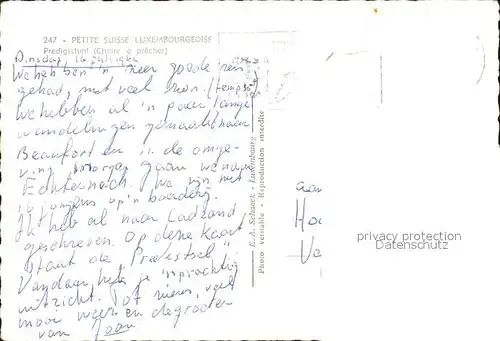 247 - PETITE SUISSE LUXEMBOURGEOISE
Predigtstuhl (Chaire à prêcher)
Dinsdag, 14 juli 196
We hebben 'n zeer goede reis
gehad, met veel zon (temp 30°)
We hebben al 'n paar lange
wandelingen gemaakt naar
Beaufort en in de omge-
ving. Morgen gaan we naar
Echternach. We zijn met
jongens op 'n boerderij.
Ik heb al naar Cadzand
geschreven. Op deze kaart
staat de "Predigtstuhl"
Vandaar heb je 'n prachtig
uitzicht. Tot ziens, veel
mooi weer en de groeten
van Jaan
E. A. Schaack - Luxembourg
Photo véritable - Reproduction interdite
Ho
Ve
privacy protection
Datenschutz